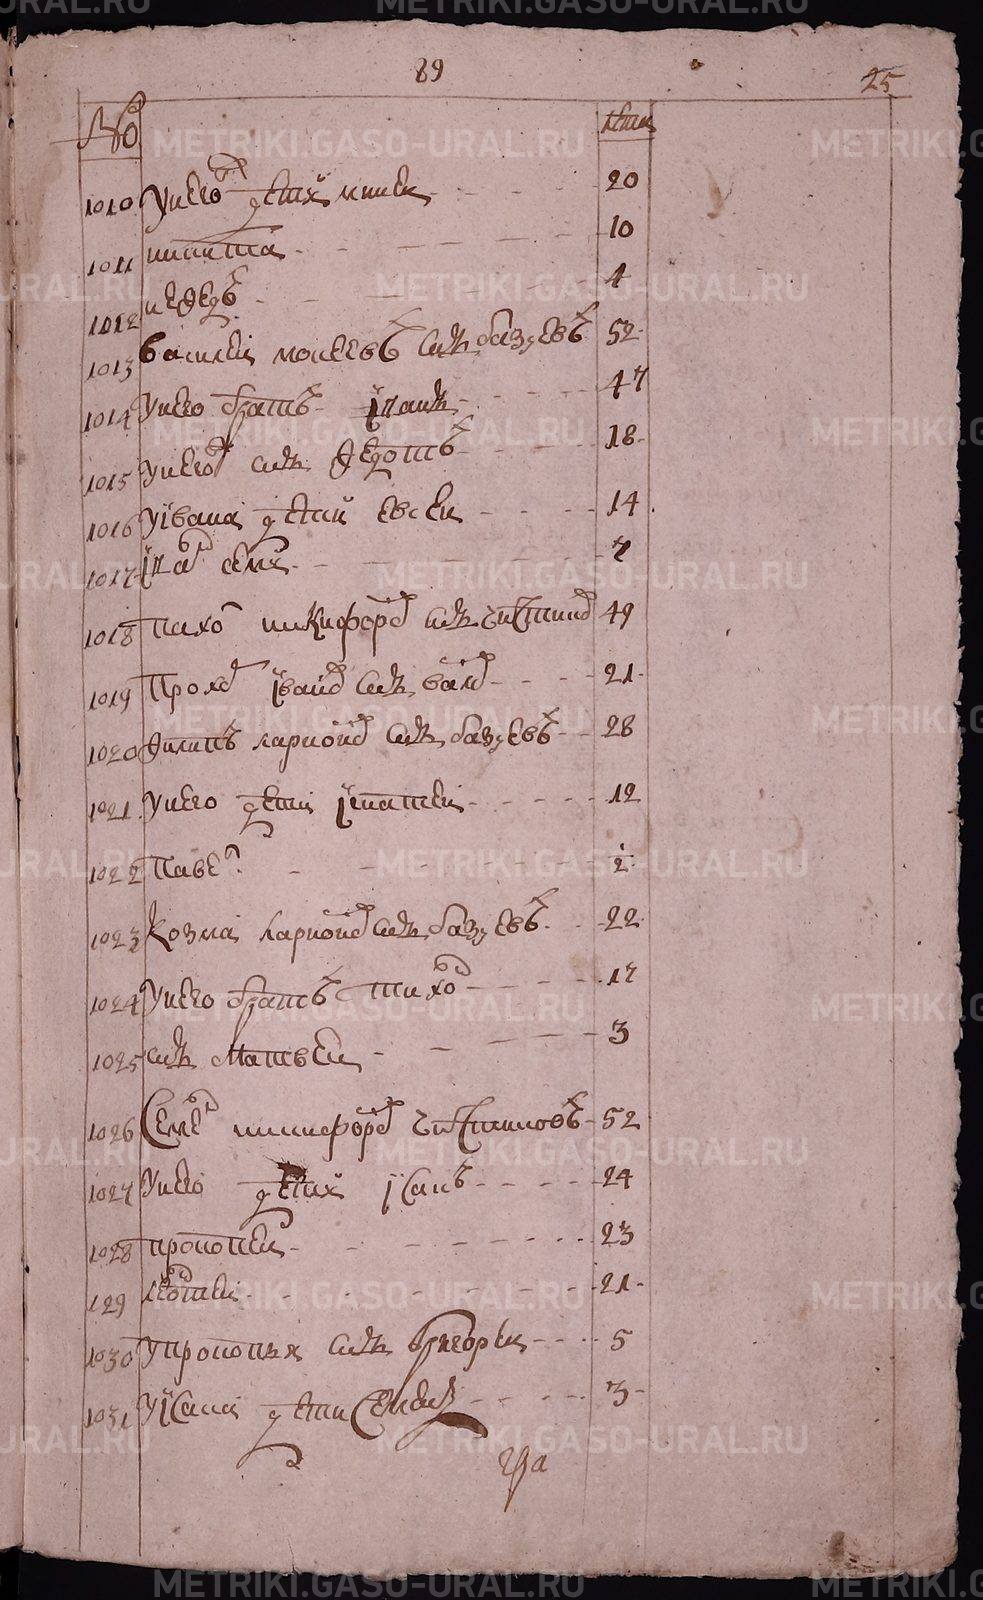 89
25
№ лѣта
1010 У него детей михей 20
1011 никита 10
1012 нефедъ 4
1013 василей моисеевъ сынъ базуевъ 52
1014 У него братъ Iванъ 47
1015 У него сынъ федотъ 18
1016 У iвана дѣтей евсей 14
1017 Iванъ семенъ 7
1018 пахом никифоровъ сынъ 49
1019 Прохор iванов сынъ 21
1020 Филипъ ларионов сынъ базуевъ 28
1021 У него дети игнатей 12
1022 Павел 2
1023 Козма ларионов сынъ базуевъ 22
1024 У него братъ тихон 17
1025 сынъ Матвей 3
1026 Семен никифоров 52
1027 У него детей iсакъ 24
1028 прокопей 23
129 леонтей 21
1030 У прокопья сынъ григорей 5
1031 У iсака дети 3
METRIKI.GASO-URAL.RU